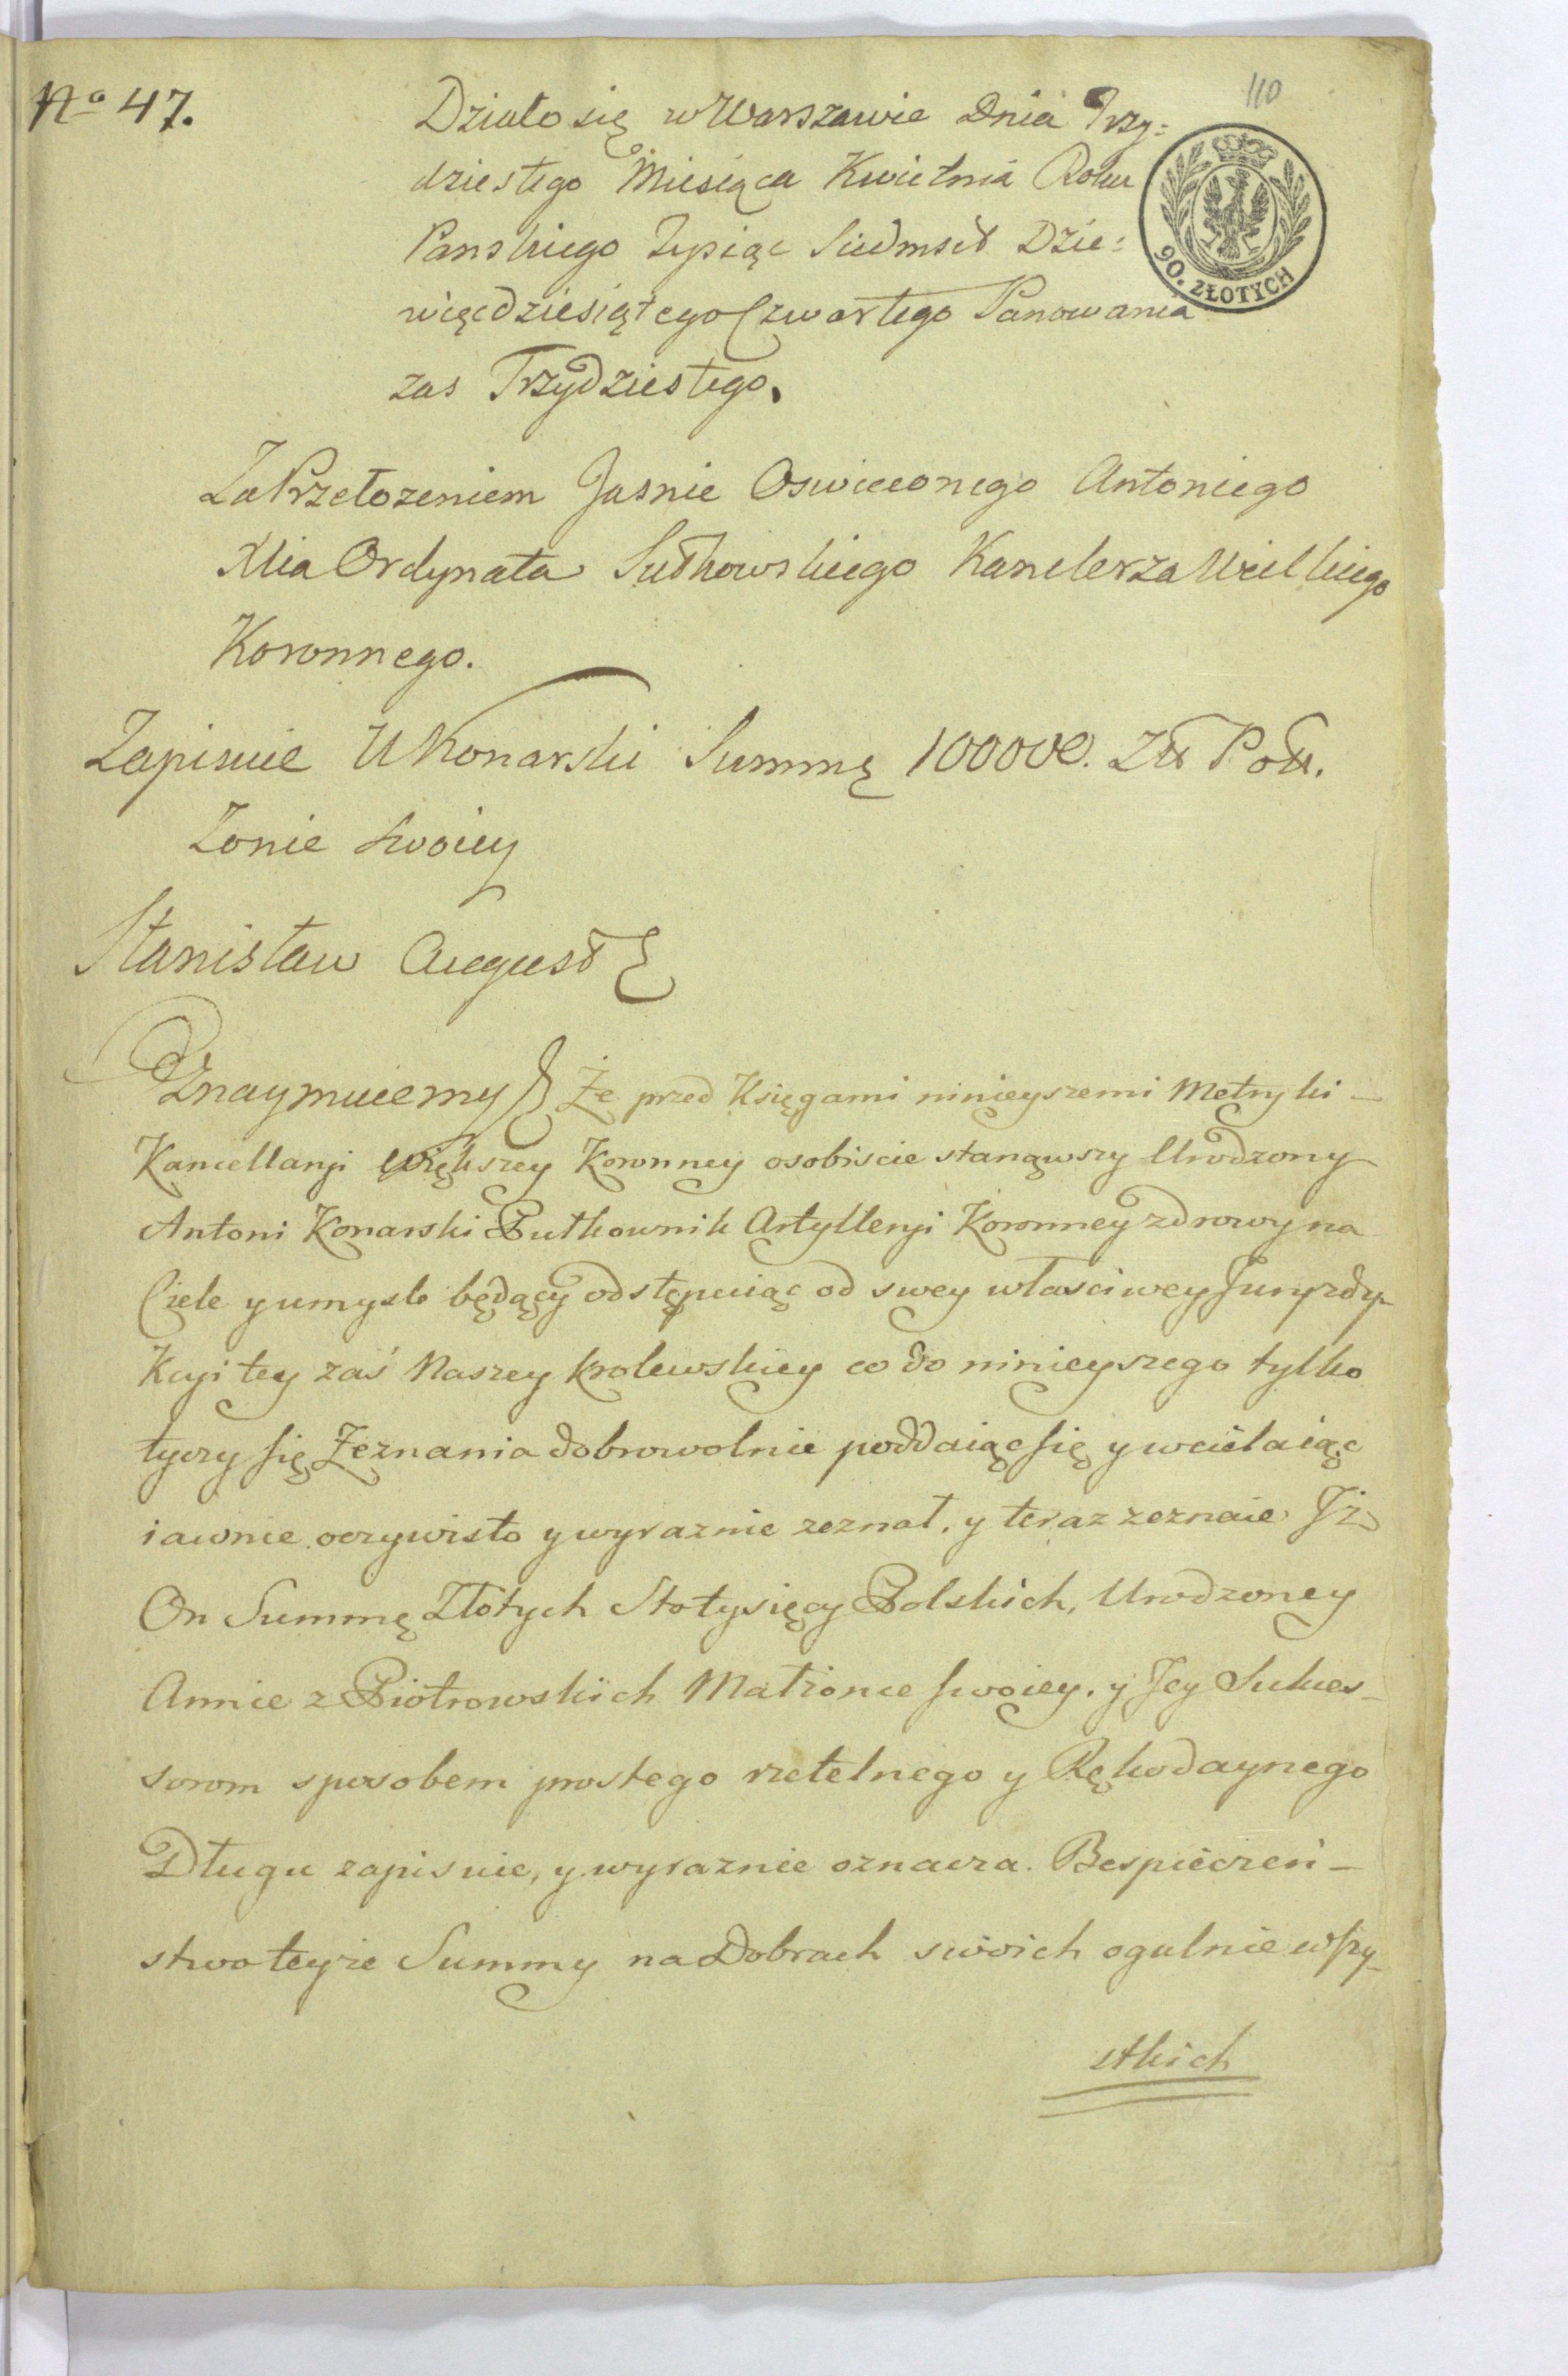 No 47.
110
Działo się w Warszawie Dnia Trzy:
dziestego Miesiąca Kwietnia Roku
Panskiego Tysiąc Siedmset Dzie:
więćdziesiątego Czwartego Panowania
zas Trzydziestego.
90. ZŁOTYCH
Za Przełozeniem Jasnie Oswieconego Antoniego
Xcia Ordynata Sułkowskiego Kanclerza Wielkiego
Koronnego.
Zapisuie U Konarski Summę 100000. Zł Pol.
Zonie swoiey
Stanisław August
Oznaymuiemy Że przed Księgami ninieyszemi Metryki
Kancellaryi Większey Koronney osobiscie stanąwszy Urodzony
Antoni Konarski Pułkownik Artylleryi Koronney zdrowy na
Ciele y umysle będący odstępuiąc od swey własciwey Juryzdy-
kcyi tey zaś Naszey krolewskiey co do ninieyszego tylko
tyczy się Zeznania dobrowolnie poddaiąc się y wcielaiąc
iawnie oczywisto y wyraznie zeznał, y teraz zeznaie Jż
On Summę Złotych Stotysięcy Polskich, Urodzoney
Annie z Piotrowskich Małzonce swoiey. y Jey Sukces-
sorom sposobem prostego rzetelnego y Rękodaynego
Długu zapisuie, y wyraznie oznacza. Bespieczeń-
stwo teyze Summy na Dobrach swoich ogulnie wszy-
stkich